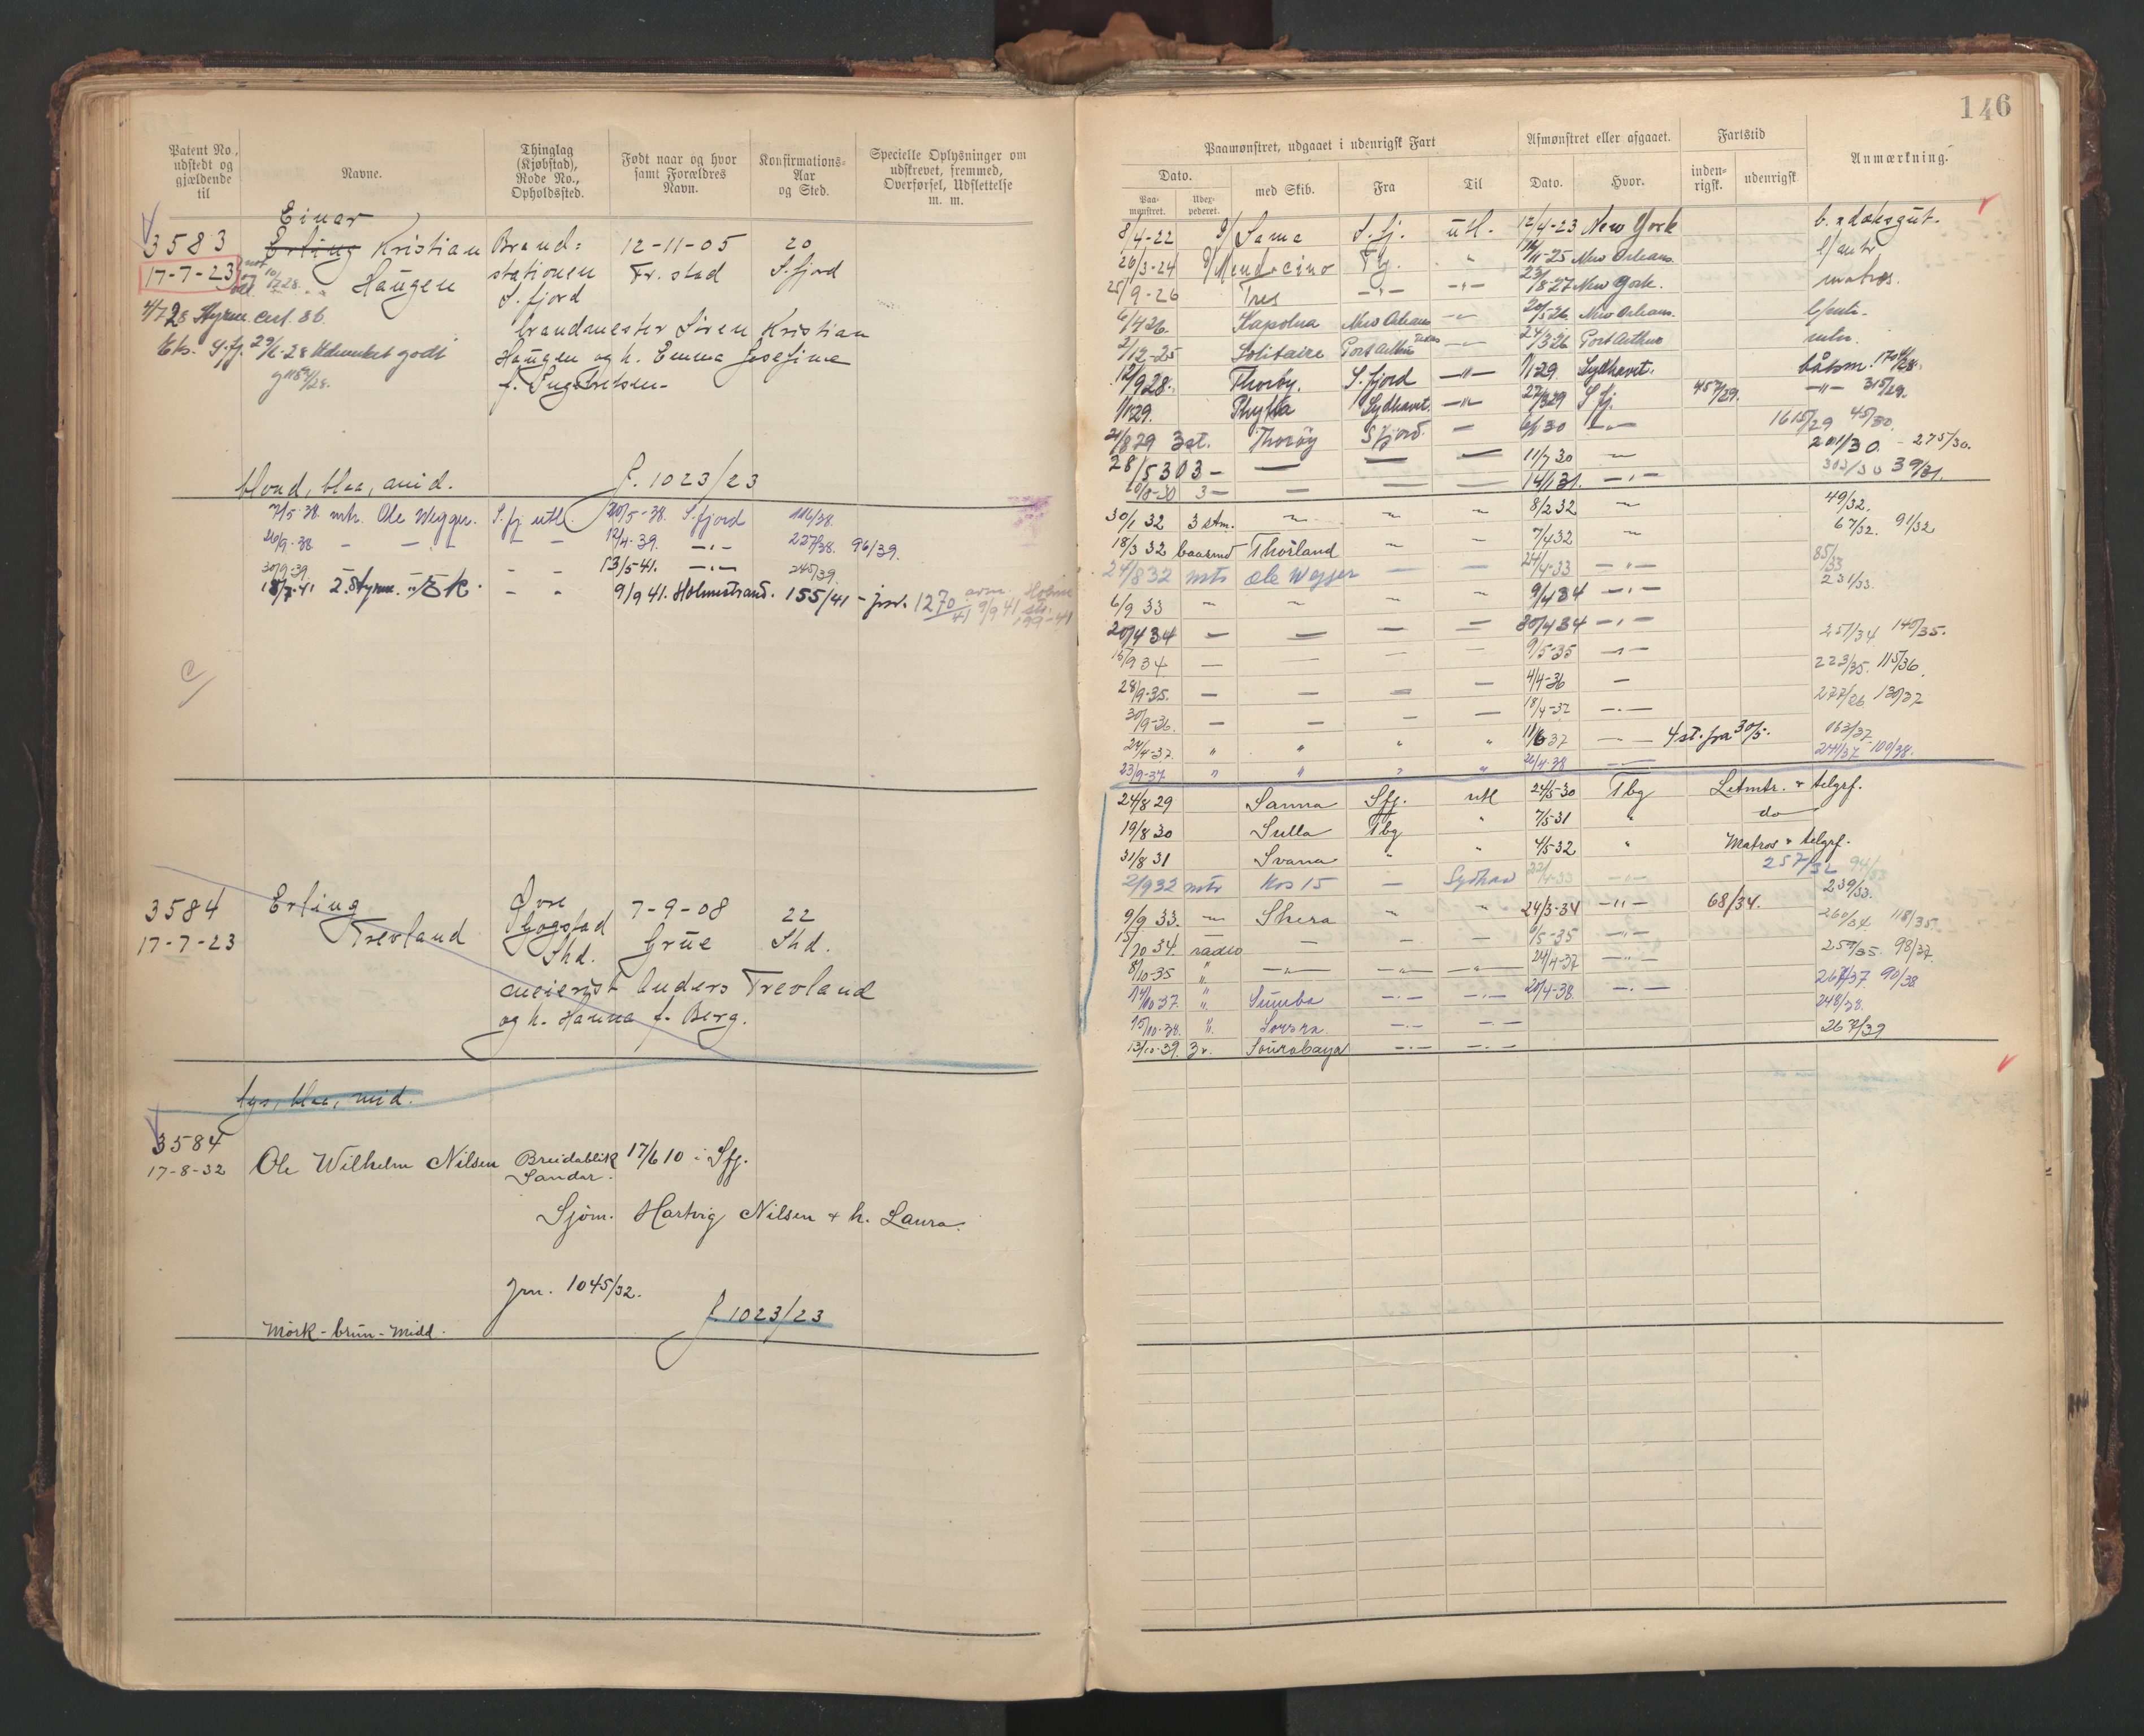 146
Patent No., udstedt og gjældende til
Navne.
Thinglag (Kjøbstad), Rode No., Opholdssted.
Født naar og hvor samt Forældres Navn.
Konfirmations-Aar og Sted.
Specielle Oplysninger om udskrevet, fremmed, Overførsel, Udslettelse m. m.
Einar
3583 Erling Kristian Brand= 12-11-05 20
17-7-23 Haugen stationen Fr.stad S.fjord
S. fjord
brandmester Søren Kristian
Haugen og h. Emma Josefine
blond, blaa, mid. J. 1023/23
7/5-38. mtr. Ole Wegger. S.fj. utl. 20/5-38. S.fjord 116/38.
26/9-38 - - - - 12/4-39. -"- 227/38. 96/39.
30/9-39. - - 13/5-41. -"- 245/39.
18/7-41 2. Styrm. - - 9/9 41. Holmestrand. 155/41
3584 Erling Øvre 7-9-08 22
17-7-23 Trevland Gogstad Grue Shd.
Shd.
meierist Anders Trevland
og h. Hanna f. Berg.
lys, blaa, mid.
3584
17-8-32 Ole Wilhelm Nilsen Breidablikk 17/6 10 i Sfj.
Sandar.
Sjøm. Hartvig Nilsen + h. Laura.
Jrn. 1045/32.
J. 1023/23
Mörk - brun - Midd.
Paamønstret, udgaaet i udenrigsk Fart
Afmønstret eller afgaaet.
Fartstid
Anmærkning.
Dato.
med Skib.
Fra
Til
Dato.
Hvor.
inden-rigsk.
udenrigsk
Paa-mønstret.
Udex-pederet.
8/4-22 Sama S.fj. utl. 12/4-23 New York
26/3-24 Mendocino -25 New Orleans
25/9-26 Tres -"- -"- 23/8-27 New York. matros.
6/4 26. Kapolna New Orleans 20/5-26. New Orleans.
2/12-25 Solitaire Port Arthur Texas 24/3 26 Port Arthur
12/9 28. Thorøy. S.fjord -"- 1/1 29 Sydhavet. båtsm.
1/1 29. Sydhavet. -"- 22/3 29 S fj. 45/29. -"- 315/29.
21/8 29 3 st. Thorøy S fjord. 6/1 30 161/29 45/30.
28/5 30 3 - 11/7 30 201/30. - 275/30.
20/8-30 3 - 14/1 31. -"- 39/31.
30/1 32 3 stm. 8/2 32 49/32.
18/3 32 baatsmd Thorland 7/4 32 67/32. 91/32
24/8 32 mtr Ole Wegger 24/4-33 -"- 85/33
6/9 33 9/4 34 -"- 231/33.
20/4 34 30/4 34 -"-
15/9 34 9/5-35 -"- 251/34 140/35.
28/9-35. 4/4-36 - 223/35. 115/36.
30/9-36. 18/4-37 -"- 277/36 130/37
24/4-37. " " " " 11/6 37 4 st. fra 30/5. 163/37
23/9-37 " " " " 26/4-38 244/37 - 100/38.
24/8 29 Sanna Sfj. utl 24/5-30 Tbg Letmtr. + telgrf.
19/8 30 Sulla Tbg " 7/5-31 " do
31/8 31 Svana " " 4/5-32 " Matros + telgrf.
2/9 32 mtr Kos 15 - Sydhav -33 -"- 257/32 94/33
9/9 33. Shera " " 24/3-34 -"- 68/34. 239/33.
34. radio - - - 6/5-35 -"- 260/34 118/35.
8/10-35 " -"- -"- -"- 24/4-37 -"- 98/37.
14/10 37. " Sumba -"- -"- 20/4-38. -"- 267/37. 90/38
15/10-38. " -"- -"- 248/38.
13/10-39. Sourabaya -"- -"- 267/39